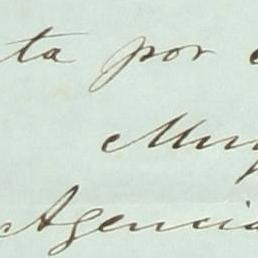 ta por
Muy
Agencia